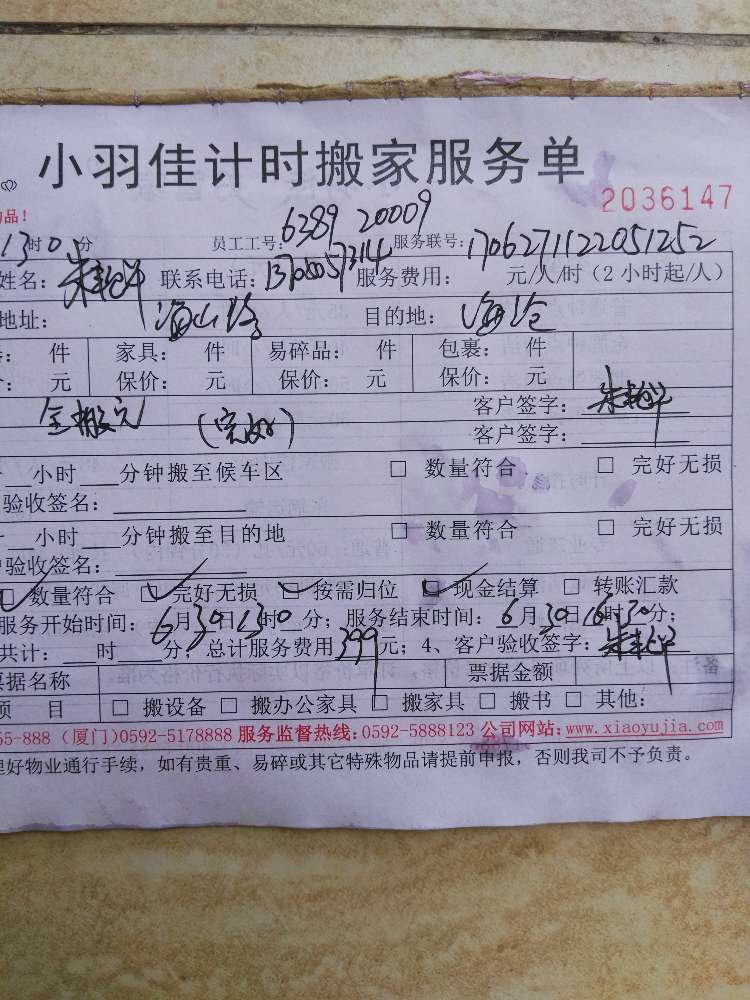 小羽佳计时搬家服务单
2036147
品！
13时0分 员工工号：6389 20009 服务联号：1706271122051252
姓名： 联系电话： 服务费用： 元/人/时（2小时起/人）
地址： 目的地：海沧
： 件 家具： 件 易碎品： 件 包裹： 件
： 元 保价： 元 保价： 元 保价： 元
全搬完 （完好） 客户签字：
客户签字：
小时 分钟搬至候车区 □ 数量符合 □ 完好无损
验收签名：
小时 分钟搬至目的地 □ 数量符合 □ 完好无损
验收签名：
☑ 数量符合 ☑ 完好无损 ☑ 按需归位 ☑ 现金结算 □ 转账汇款
服务开始时间：6月30日13时0分；服务结束时间：6月30日16时30分；
共计： 时 分，总计服务费用399元；4、客户验收签字：
票据名称 票据金额
项 目 □ 搬设备 □ 搬办公家具 □ 搬家具 □ 搬书 □ 其他：
55-888（厦门）0592-5178888 服务监督热线：0592-5888123 公司网站：www.xiaoyujia.com
理好物业通行手续，如有贵重、易碎或其它特殊物品请提前申报，否则我司不予负责。